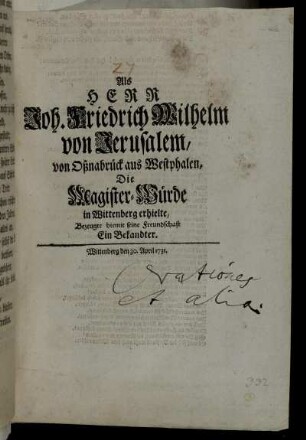 27
Als
HERR
Joh. Friedrich Wilhelm
von Jerusalem,
von Oßnabrück aus Westphalen,
Die
Magister-Würde
in Wittenberg erhielte,
Bezeugte hiermit seine Freundschaft
Ein Bekandter.
Wittenberg den 30. April 1731.
Orationes
et alia.
392